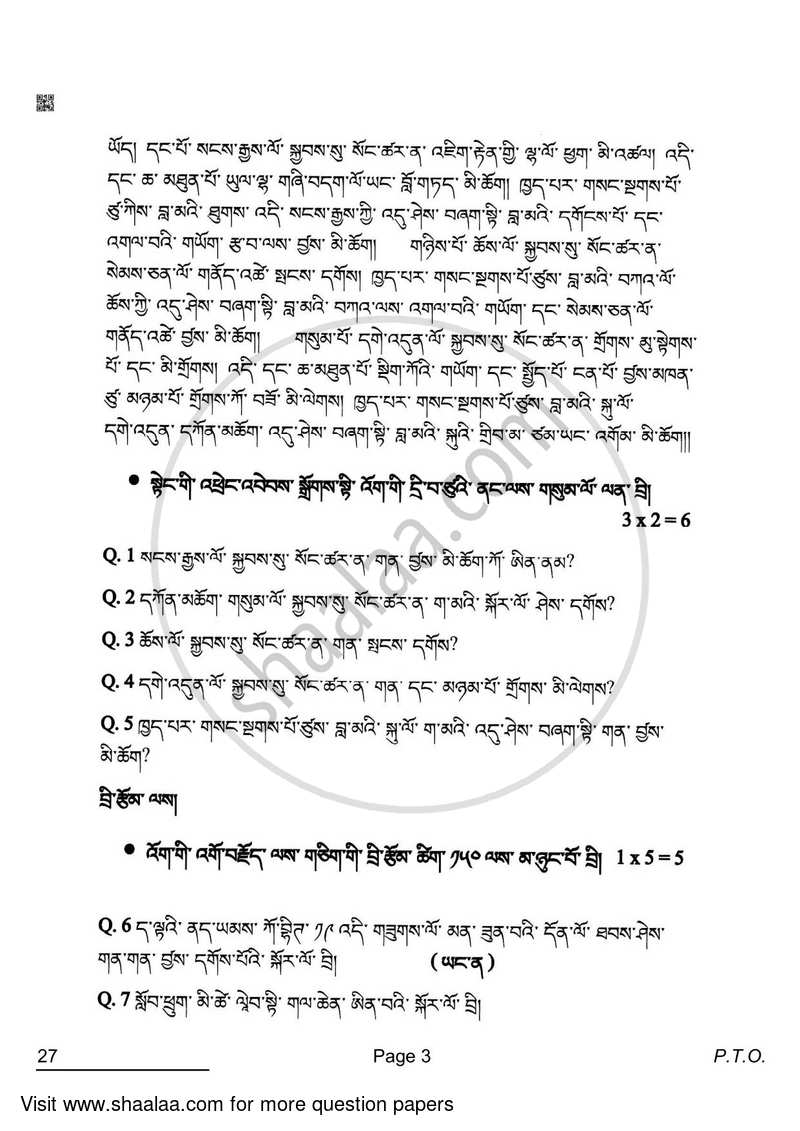 ཡོད། དང་པོ་ སངས་རྒྱས་ལོ་ སྐྱབས་སུ་ སོང་ཚར་ན་ འཇིག་རྟེན་གྱི་ ལྷ་ལོ་ ཕྱག་ མི་འཚལ། འདི་
དང་ ཆ་ མཐུན་པོ་ ཡུལ་ལྷ་ གཞི་བདག་ལོ་ཡང་ བློ་གཏད་ མི་ཆོག། ཁྱད་པར་ གསང་སྔགས་པོ་
ཙུ་ཀིས་ བླ་མའི་ ཐུགས་ འདི་ སངས་རྒྱས་ཀྱི་ འདུ་ཤེས་ བཞག་སྟི་ བླ་མའི་ དགོངས་པོ་ དང་
འགལ་བའི་ གཡོག་ རྩ་བ་ལས་ བྱས་ མི་ཆོག། གཉིས་པོ་ ཆོས་ལོ་ སྐྱབས་སུ་ སོང་ཚར་ན་
སེམས་ཅན་ལོ་ གནོད་འཚེ་ སྤངས་ དགོས། ཁྱད་པར་ གསང་སྔགས་པོ་ཙུས་ བླ་མའི་ བཀའ་ལོ་
ཆོས་ཀྱི་ འདུ་ཤེས་ བཞག་སྟི་ བླ་མའི་ བཀའ་ལས་ འགལ་བའི་ གཡོག་ དང་ སེམས་ཅན་ལོ་
གནོད་འཚེ་ བྱས་ མི་ཆོག། གསུམ་པོ་ དགེ་འདུན་ལོ་ སྐྱབས་སུ་ སོང་ཚར་ན་ གྲོགས་ མུ་སྟེགས་
པོ་ དང་ མི་གྲོགས། འདི་ དང་ ཆ་མཐུན་པོ་ སྡིག་ཀོའི་ གཡོག་ དང་ སྤྱོད་པོ་ ངན་པོ་ བྱས་མཁན་
ཙུ་ མཉམ་པོ་ གྲོགས་ཀོ་ བཟོ་ མི་ལེགས། ཁྱད་པར་ གསང་སྔགས་པོ་ཙུས་ བླ་མའི་ སྐུ་ལོ་
དགེ་འདུན་ དཀོན་མཆོག་ འདུ་ཤེས་ བཞག་སྟི་ བླ་མའི་ སྐུའི་ གྲིབ་མ་ ཙམ་ཡང་ འགོམ་ མི་ཆོག།།
• སྟེང་གི་ འཕྲེང་འབེབས་ སྒྲོགས་སྟི་ འོག་གི་ དྲི་བ་ཙུའི་ ནང་ལས་ གསུམ་ལོ་ ལན་ བྲི།
3 x 2 = 6
Q. 1 སངས་རྒྱས་ལོ་ སྐྱབས་སུ་ སོང་ཚར་ན་ གན་ བྱས་ མི་ཆོག་ཀོ་ ཨིན་ནམ?
Q. 2 དཀོན་མཆོག་ གསུམ་ལོ་ སྐྱབས་སུ་ སོང་ཚར་ན་ ག་མའི་ སྐོར་ལོ་ ཤེས་ དགོས?
Q. 3 ཆོས་ལོ་ སྐྱབས་སུ་ སོང་ཚར་ན་ གན་ སྤངས་ དགོས?
Q. 4 དགེ་འདུན་ལོ་ སྐྱབས་སུ་ སོང་ཚར་ན་ གན་ དང་ མཉམ་པོ་ གྲོགས་ མི་ལེགས?
Q. 5 ཁྱད་པར་ གསང་སྔགས་པོ་ཙུས་ བླ་མའི་ སྐུ་ལོ་ ག་མའི་ འདུ་ཤེས་ བཞག་སྟི་ གན་ བྱས་
མི་ཆོག?
བྲི་རྩོམ་ ལས།
• འོག་གི་ འགོ་བརྗོད་ ལས་ གཅིག་གི་ བྲི་རྩོམ་ ཚིག་ ༡༥༠ ལས་ མ་ཉུང་བོ་ བྲི། 1 x 5 = 5
Q. 6 ད་ལྟའི་ ནད་ཡམས་ ཀོ་བྷིཌ་ ༡༩ འདི་ གཟུགས་ལོ་ མན་ ཟུན་བའི་ དོན་ལོ་ ཐབས་ཤེས་
གན་གན་ བྱས་ དགོས་པོའི་ སྐོར་ལོ་ བྲི། ( ཡང་ན )
Q. 7 སློབ་ཕྲུག་ མི་ཚེ་ ལྷེབ་སྟི་ གལ་ཆེན་ ཨིན་བའི་ སྐོར་ལོ་ བྲི།
27 Page 3 P.T.O.
Visit www.shaalaa.com for more question papers
shaalaa.com